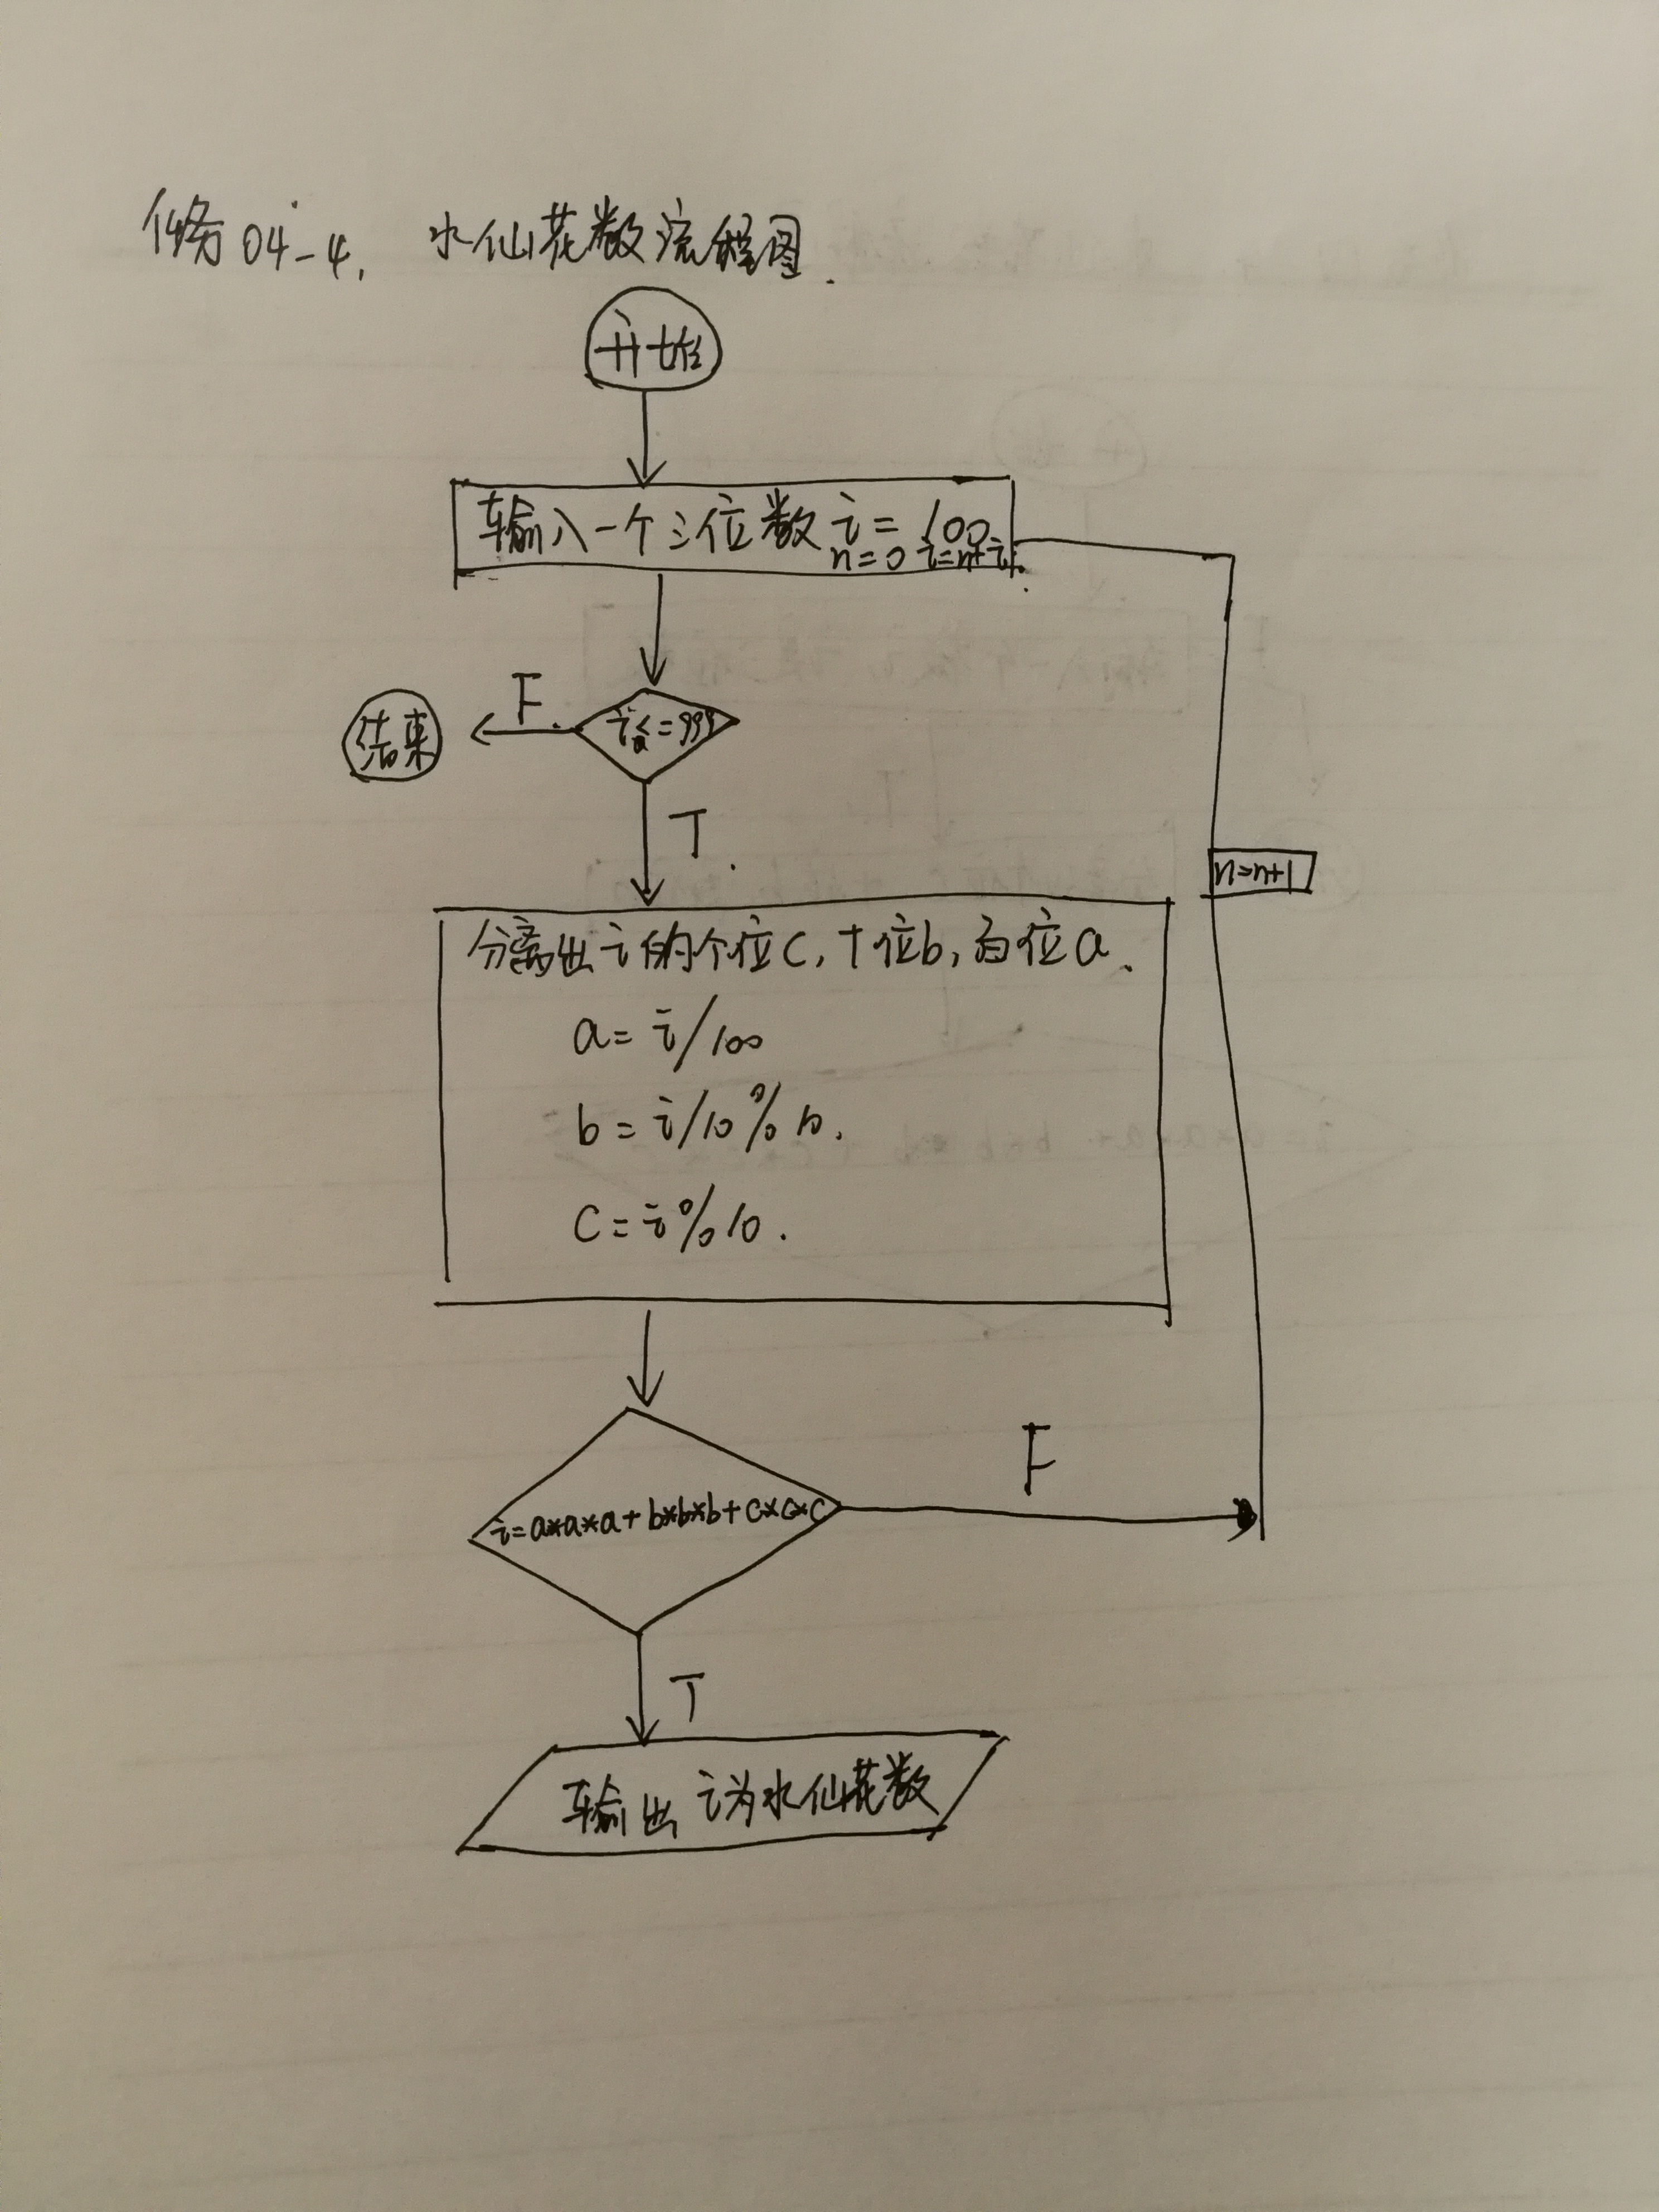 任务04-4. 水仙花数流程图.
开始
输入一个三位数 i = 100
n=0 i=n+i.
F.
i<=999
结束
T.
n=n+1
分离出i的个位c,十位b,百位a.
a=i/100
b=i/10%10.
c=i%10.
F
i=a*a*a+b*b*b+c*c*c
T
输出 i为水仙花数